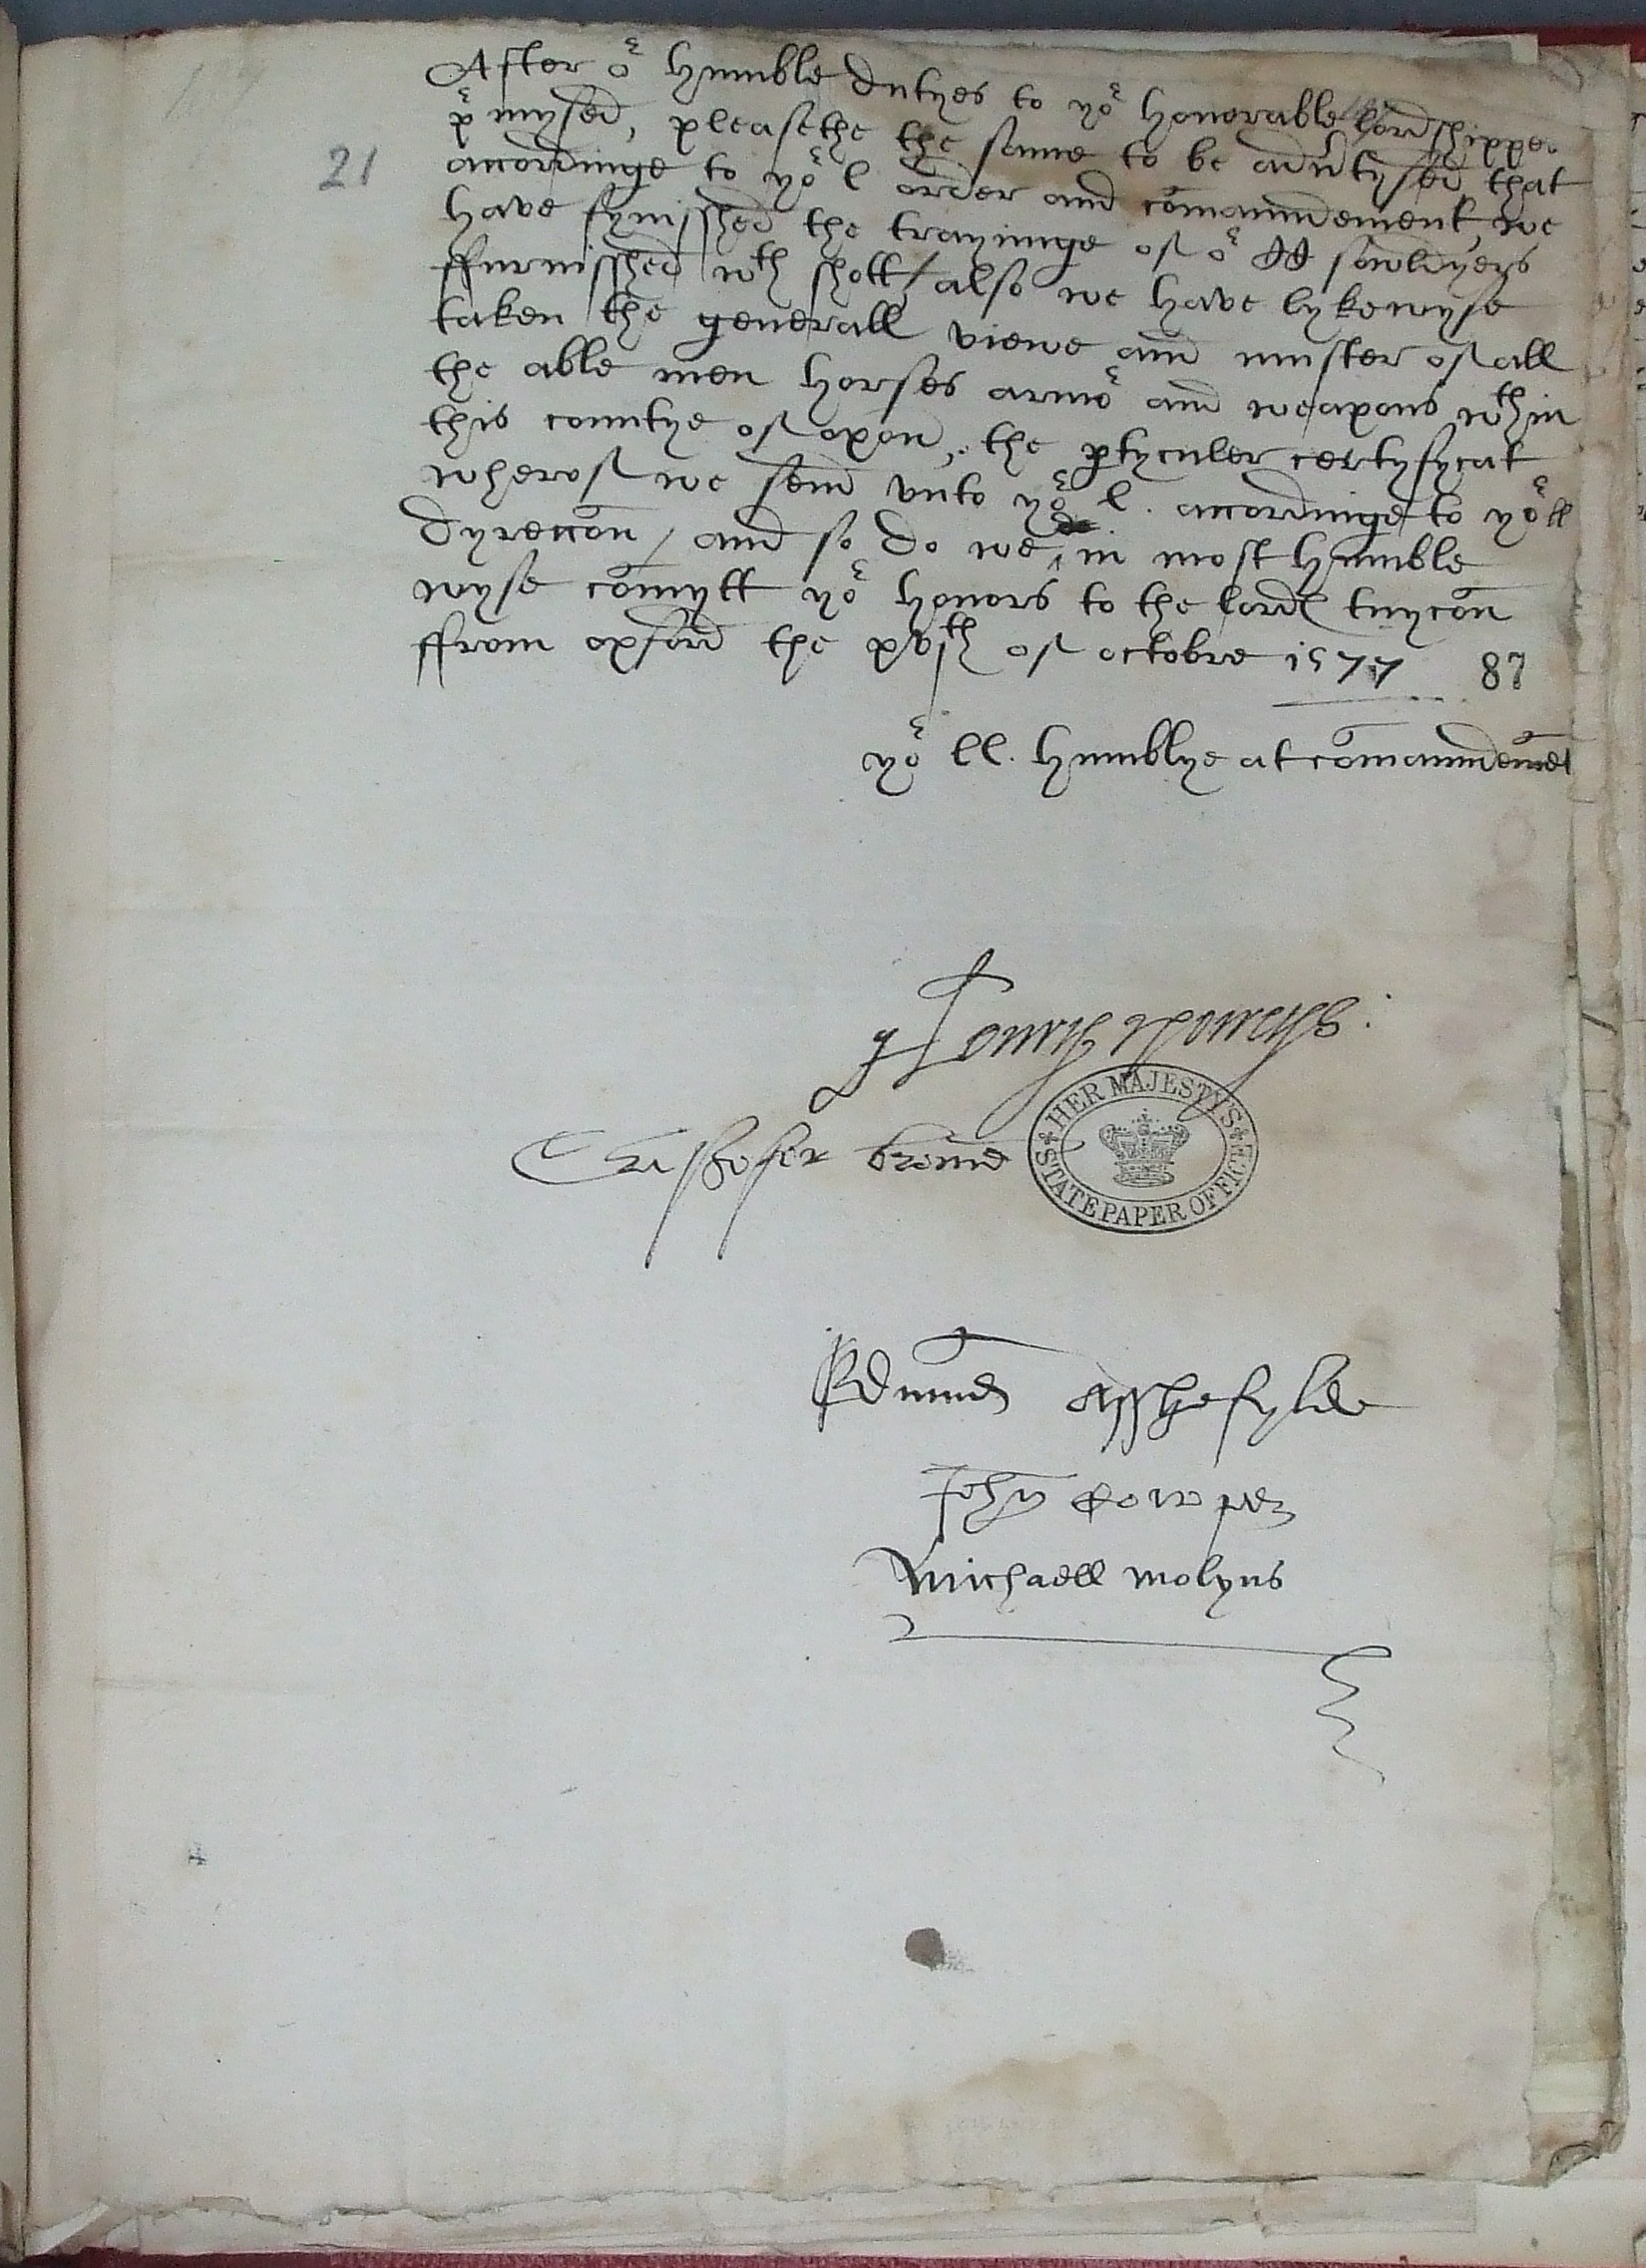 21
After or humble dutyes to yor honorable lordshippes
prmysed, pleasethe the same to be advrtysed that
accordinge to yor l order and comaundement, we
have fynisshed the trayninge of or sowldyers
ffurnisshed wth shott / also we have lykewyse
taken the generall viewe and muster of all
the able men horses armor and weapons wthin
this countye of oxon, the ptyculer certyfycat
wherof we send unto yor l. accordinge to yor ll
dyreccon / and so do we, in most humble
wyse comytt yor honors to the lordes tuycon
ffrom oxford the xvjth of octobre 1577
87
yor ll. humblye at comaundemet
Crystofer browne
HER MAJESTY'S
STATE PAPER OFFICE
Edmund Asshefylde
John Cowper
Michaell molyns